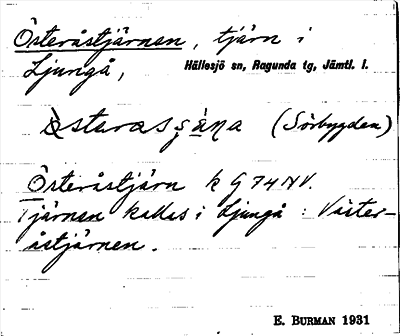 Österåstjärnen, tjärn i
Ljungå, Hällesjö sn, Ragunda tg, Jämtl. l.
(Sörbygden)
Österåstjärn k G 74 NV.
Tjärnen kallas i Ljungå: Väster-
åstjärnen.
E. BURMAN 1931